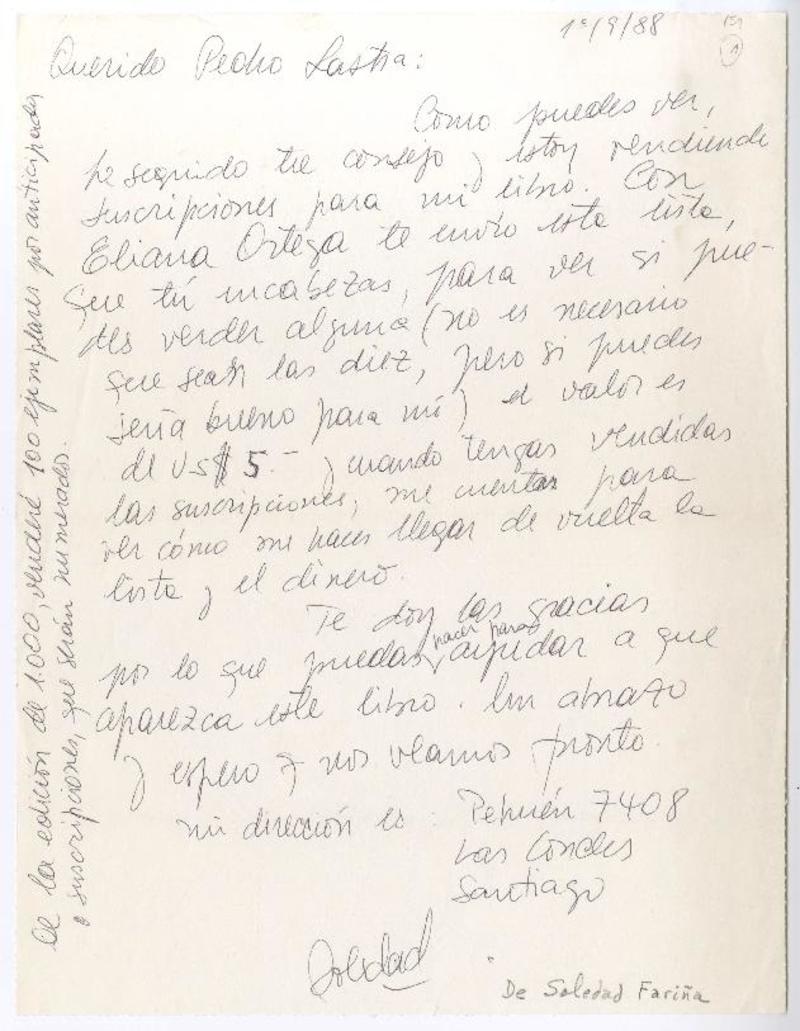 1º/9/88
Querido Pedro Lastra:
Como puedes ver,
he seguido tu consejo y estoy vendiendo
suscripciones para mi libro. Con
Eliana Ortega te envío esta lista,
que tú encabezas, para ver si pue-
des vender alguna (no es necesario
que sean las diez, pero si puedes
sería bueno para mí) el valor es
de US$ 5.- y cuando tengas vendidas
las suscripciones, me cuentas para
ver cómo me haces llegar de vuelta la
lista y el dinero.
Te doy las gracias
por lo que puedas hacer para ayudar a que
aparezca este libro. Un abrazo
y espero q nos veamos pronto.
mi dirección es: Pehuén 7408
Las Condes
Santiago
Soledad
De Soledad Fariña
De la edición de 1.000, venderé 100 ejemplares por anticipado
o suscripciones, que serán numerados.